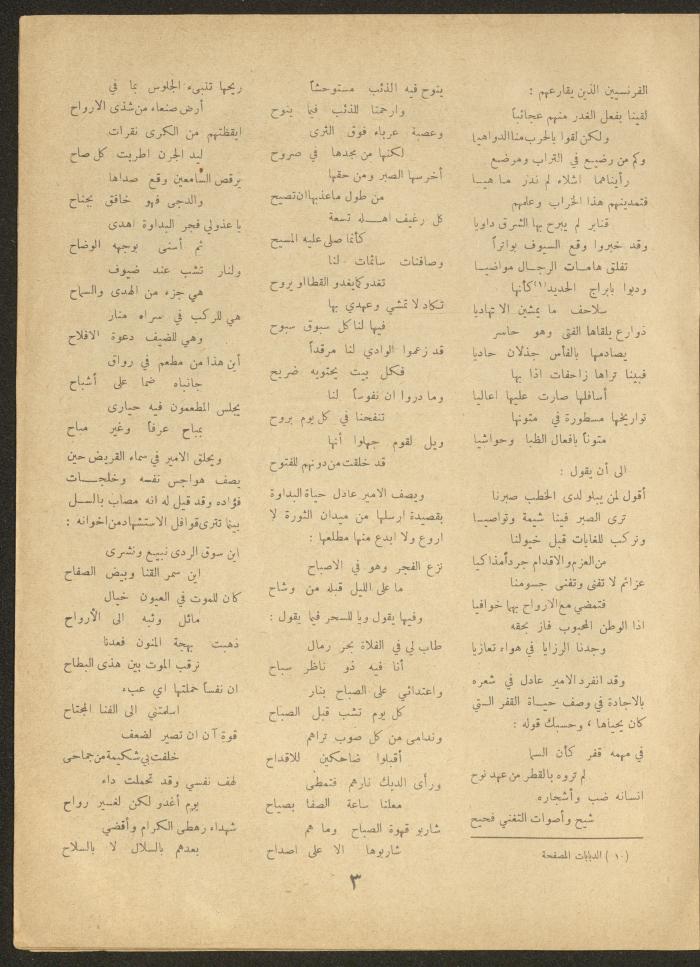 الفرنسيين الذين يقارعهم :
لقينا بفعل الغدر منهم عجائباً
ولكن لقوا بالحرب منا الدواهيا
وكم من رضيع في التراب ومرضع
رأيناهما اشلاء لم ندر ما هيا
فتمدينهم هذا الخراب وعلمهم
قنابر لم يبرح بها الشرق داويا
وقد خبروا وقع السيوف بواتراً
تفلق هامات الرجال مواضيا
ودبوا بابراج الحديد(١) كأنها
سلاحف ما يمشين الا تهاديا
ذوارع يلقاها الفتى وهو حاسر
يصادمها بالفأس جذلان حاديا
فبينا تراها زاحفات اذا بها
أسافلها صارت عليها اعاليا
تواريخها مسطورة في متونها
متوناً بافعال الظبا وحواشيا
الى أن يقول :
أقول لمن يبلو لدى الخطب صبرنا
ترى الصبر فينا شيمة وتواصيا
ونركب للغايات قبل خيولنا
من العزم والاقدام جرداً مذاكيا
عزائم لا تفنى وتفنى جسومنا
فتمضي مع الارواح بهما خوافيا
اذا الوطن المحبوب فاز بحقه
وجدنا الرزايا في هواه تعازيا
وقد انفرد الامير عادل في شعره
بالاجادة في وصف حياة القفر التي
كان يحياها ، وحسبك قوله :
في مهمه قفر كأن السما
لم تروه بالقطر من عهد نوح
انسانه ضب وأشجاره
شيح وأصوات التغني فحيح
(١٠) الدبابات المصفحة
ينوح فيه الذئب مستوحشاً
وارحمتا للذئب فيما ينوح
وعصبة عرباء فوق الثرى
لكنها من مجدها في صروح
أخرسها الصبر ومن حقها
من طول ما عذبها ان تصيح
كل رغيف اهله تسعة
كأنما صلى عليه المسيح
وصافنات سائمات لنا
تغدو كما يغدو القطا او يروح
تكاد لا تمشي وعهدي بها
فيها لنا كل سبوق سبوح
قد زعموا الوادي لنا مرقداً
فكل بيت يحتويه ضريح
وما دروا ان نفوساً لنا
تنفحنا في كل يوم بروح
ويل لقوم جهلوا أنها
قد خلقت من دونهم للفتوح
ويصف الامير عادل حياة البداوة
بقصيدة ارسلها من ميدان الثورة لا
اروع ولا ابدع منها مطلعها :
نزع الفجر وهو في الاصباح
ما على الليل قبله من وشاح
وفيها يقول ويا للسحر فيما يقول :
طاب لي في الفلاة بحر رمال
أنا فيه ذو ناظر سباح
واعتدائي على الصباح بنار
كل يوم تشب قبل الصباح
وندامى من كل صوب تراهم
أقبلوا ضاحكين للاقداح
ورأى الديك نارهم فتمطى
معلنا ساعة الصفا بصياح
شاربو قهوة الصباح وما هم
شاربوها الا على اصداح
ريحها تنبىء الجلوس بما في
أرض صنعاء من شذى الارواح
ايقظتهم من الكرى نقرات
ليد الجرن اطربت كل صاح
يرقص السامعين وقع صداها
والدجى فهو خافق بجناح
يا عذولي فجر البداوة اهدى
ثم أسنى بوجهه الوضاح
ولنار تشب عند ضيوف
هي جزء من الهدى والسماح
هي للركب في سراه منار
وهي للضيف دعوة الافلاح
أين هذا من مطعم في رواق
جانباه ضما على أشباح
يجلس المطعمون فيه حيارى
بمباح عرفاً وغير مباح
ويحلق الامير في سماء القريض حين
يصف هواجس نفسه وخلجات
فؤاده وقد قيل له انه مصاب بالسل
بينما تترى قوافل الاستشهاد من اخوانه :
اين سوق الردى نبيع ونشرى
اين سمر القنا وبيض الصفاح
كان للموت في العيون خيال
ماثل وثبه الى الأرواح
ذهبت بهجة المنون فعدنا
نرقب الموت بين هذى البطاح
ان نفساً حملتها اي عبء
اسلمتني الى الفنا المجتاح
قوة آن ان تصير لضعف
خلفت بي شكيمة من جماحى
لهف نفسي وقد تحملت داء
يوم أغدو لكن لغسير رواح
شهداء رهطى الكرام وأقضي
بعدهم بالسلال لا بالسلاح
٣